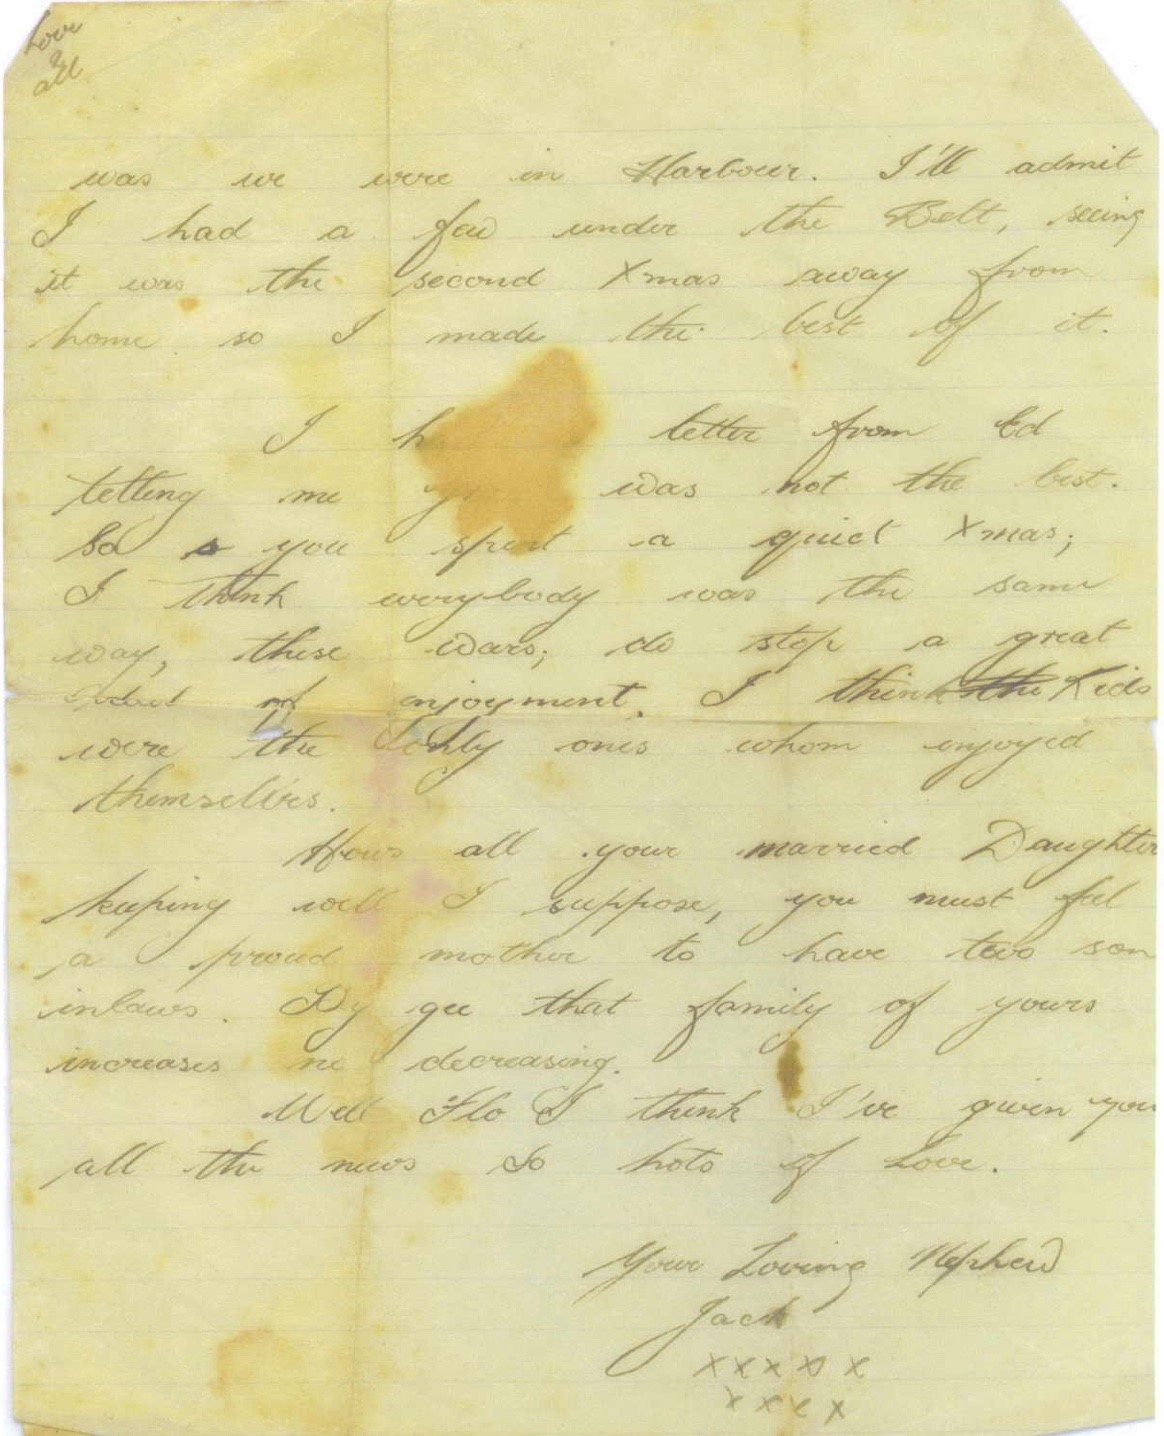 Love
&
all
was we were in Harbour. I'll admit
I had a few under the Belt, seeing
it was the second Xmas away from
home so I made the best of it.
I letter from Ed
telling me was not the best.
So you spent a quiet Xmas;
I think everybody was the same
way, these wars; do stop a great
of enjoyment. I think the Kids
were the only ones whom enjoyed
themselves.
Hows all your married Daughter
keeping well I suppose, you must feel
a proud mother to have two son
inlaws. By gee that family of yours
increases no decreasing.
Well Flo I think I've given you
all the news So hots of Love.
Your Loving Nephew
Jack
x x x x x
x x x x